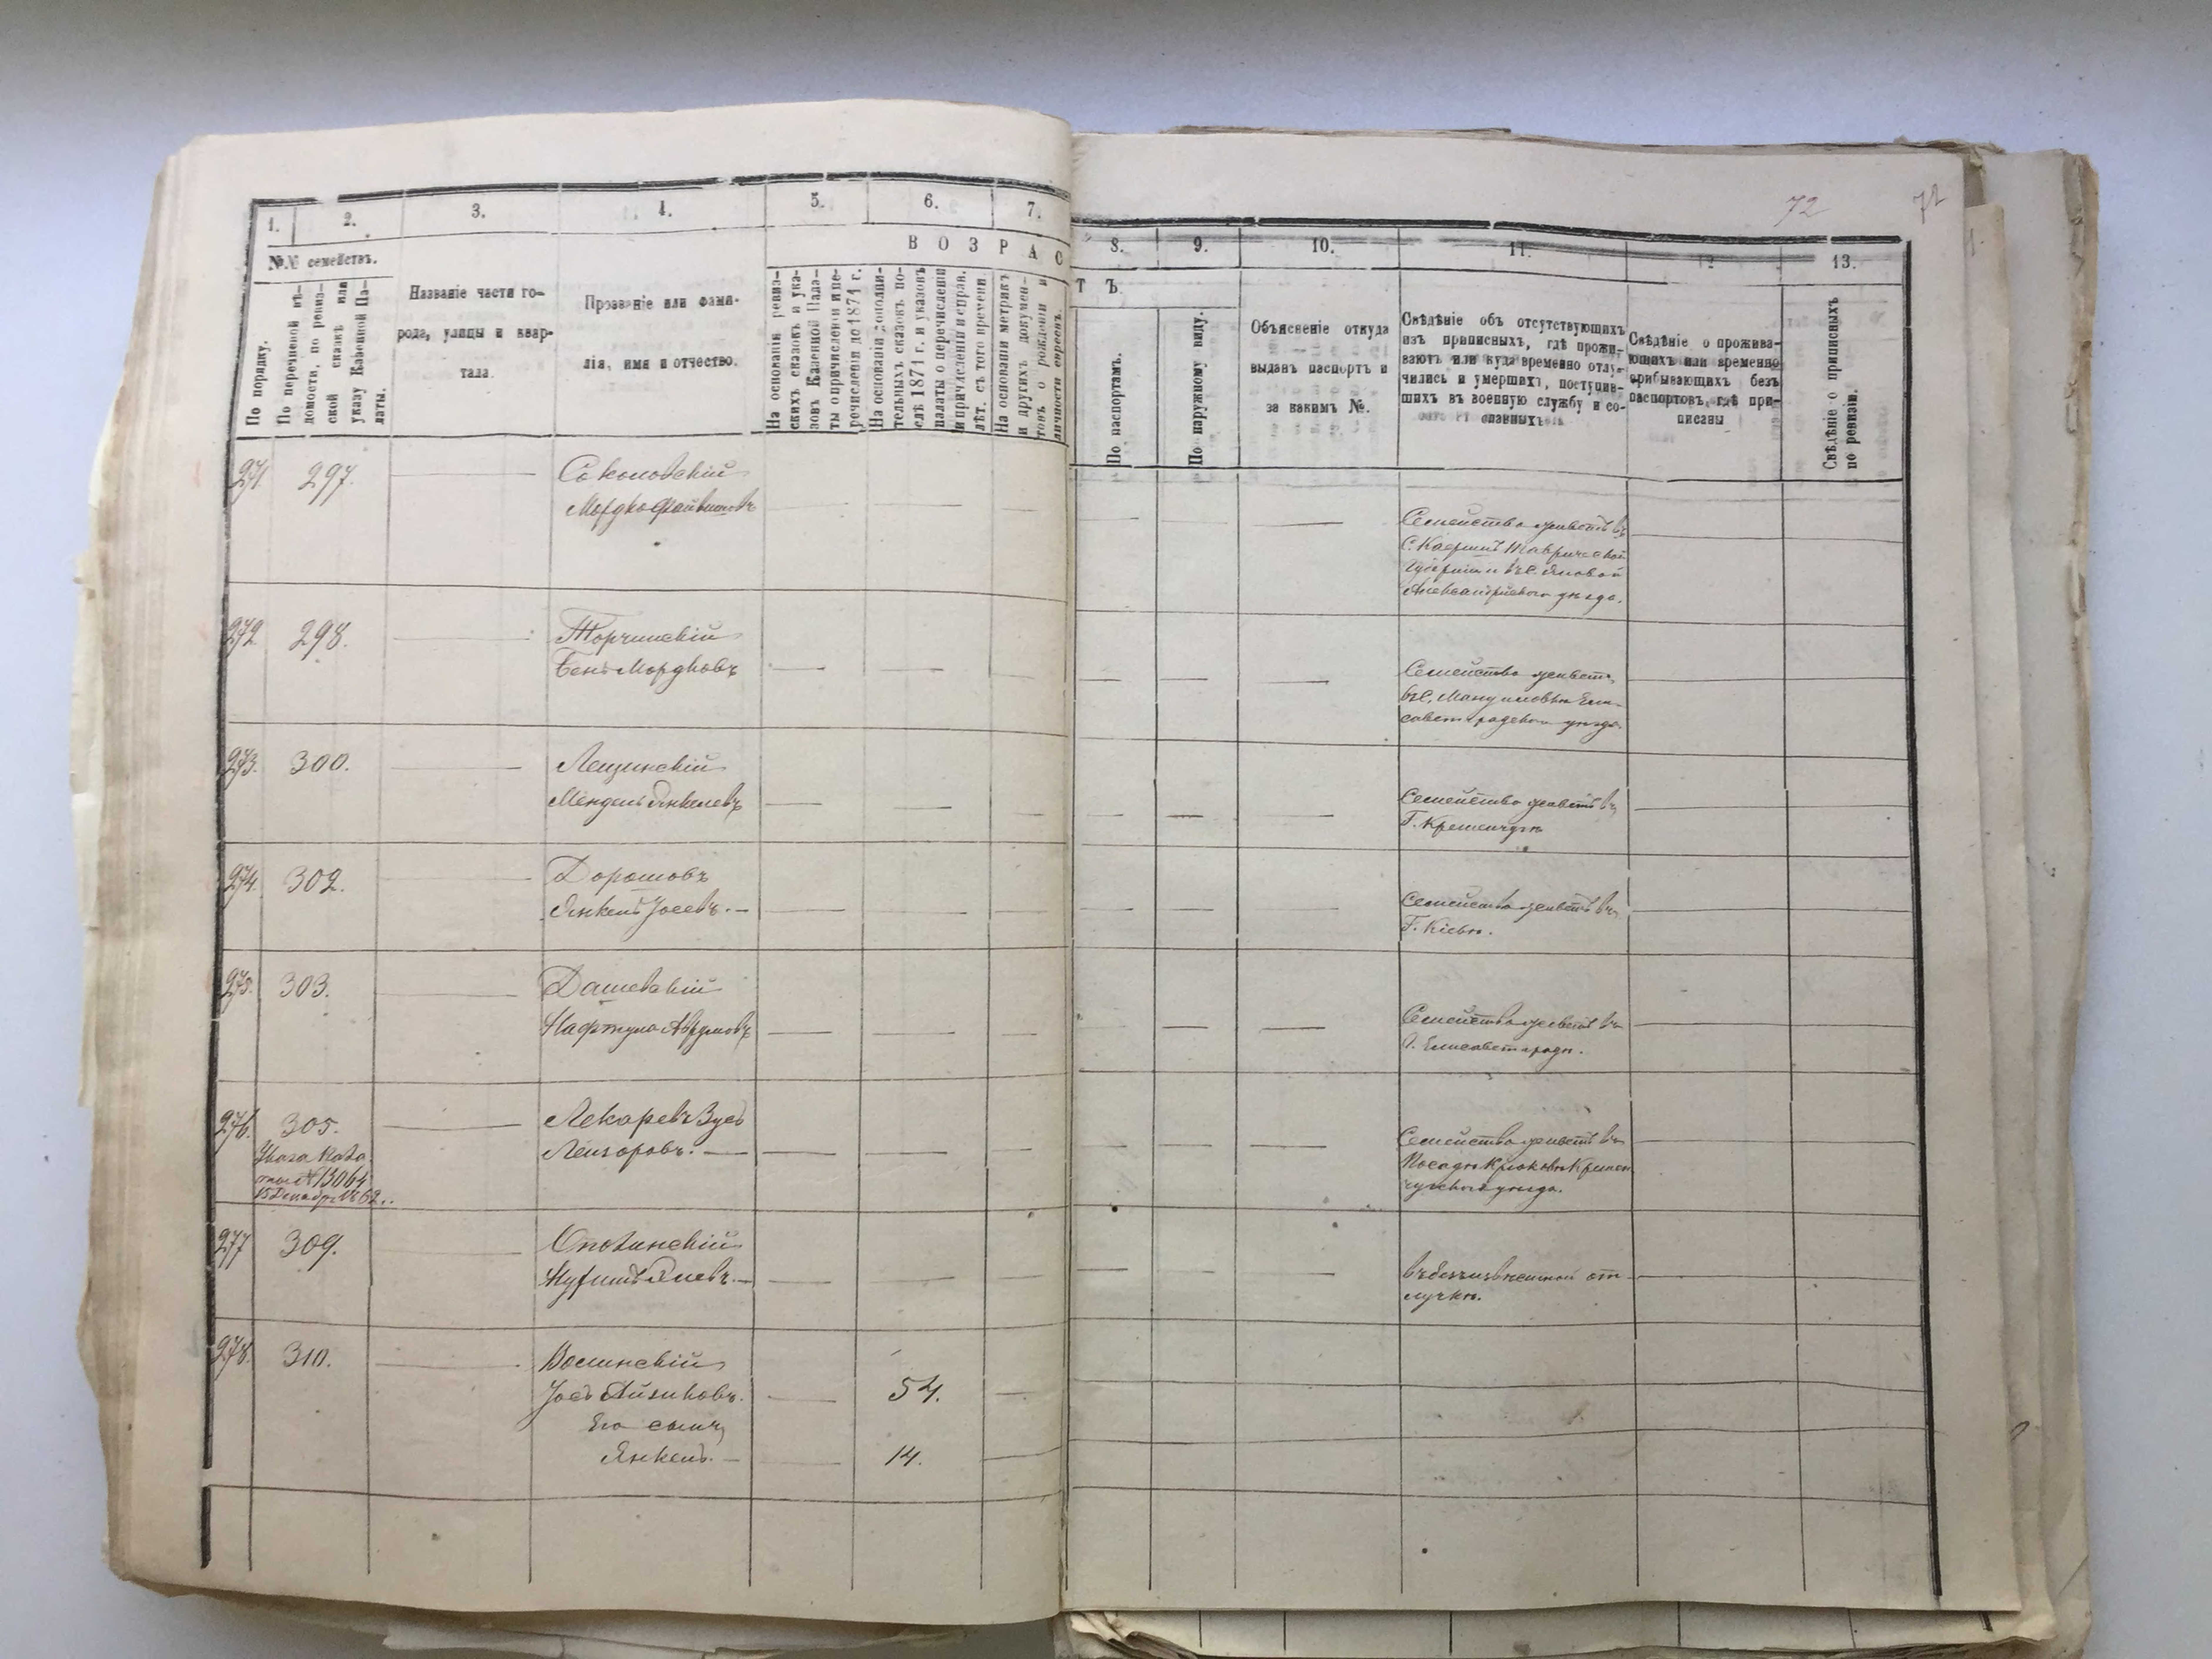 72
72
1.
2.
3.
4.
5.
6.
7.
8.
9.
10.
11.
12
13.
№№ семействъ.
В О З Р А С
Т Ъ
По порядку.
По перечневой вѣ-
домости, по ревиз-
ской сказкѣ или
указу Казенной Па-
латы.
Названіе части го-
рода, улицы и квар-
тала
Прозваніе или фами-
лія, имя и отчество.
На основаніи ревиз-
скихъ сказокъ и ука-
зовъ Казенной Пала-
ты о причисленіи и пе-
речисленіи до 1871 г.
На основаніи дополни-
тельныхъ сказокъ по-
слѣ 1871 г. и указовъ
палаты о перечисленіи
и причисленіи и справ.
лѣт. съ того времени.
На основаніи метрикъ
и другихъ докумен-
товъ о рожденіи и
личности евреевъ.
По паспортамъ.
По наружному виду.
Объясненіе откуда
выданъ паспортъ и
за какимъ №.
Свѣдѣніе объ отсутствующихъ
изъ приписныхъ, гдѣ прожи-
ваютъ или куда временно отлу-
чились и умершихъ, поступив-
шихъ въ военную службу и со-
сланныхъ
Свѣдѣніе о прожива-
ющихъ или временно
прибывающихъ безъ
паспортовъ, гдѣ при-
писаны
Свѣдѣніе о приписныхъ
по ревизіи.
271. 297. Соколовскій
Мордко Файвишовъ
Семейство живетъ въ
С. Каернѣ Таврической
губерніи и въ с. Яновой
Александрійскаго уѣзда.
272 298. Торчинскій
Бень Мордковъ
Семейство живетъ
въ С. Мануиловкѣ Ели-
саветградскаго уѣзда.
273. 300. Лещинскій
Мендель Янкелевъ
Семейство живетъ въ
Г. Кременчугѣ
274. 302. Дорошовъ
Янкель Іосевъ.
Семейство живетъ въ
Г. Кіевѣ.
275. 303. Дашевскій
Нафтула Аврумовъ
Семейство живетъ въ
Г. Елисаветградѣ.
276. 305. Лекаревъ Зусь
Лейзоровъ.
Указа Каз.
палаты №13064
15 Декабр. 1862.
Семейство живетъ въ
Посадѣ Крюковѣ Кремен
чугскаго уѣзда.
277 309. Сповинскій
въ безъизвѣстной от-
лучкѣ.
278. 310. Волинскій
Іось Айзиковъ. 54.
Его сынъ
Янкель. 14.